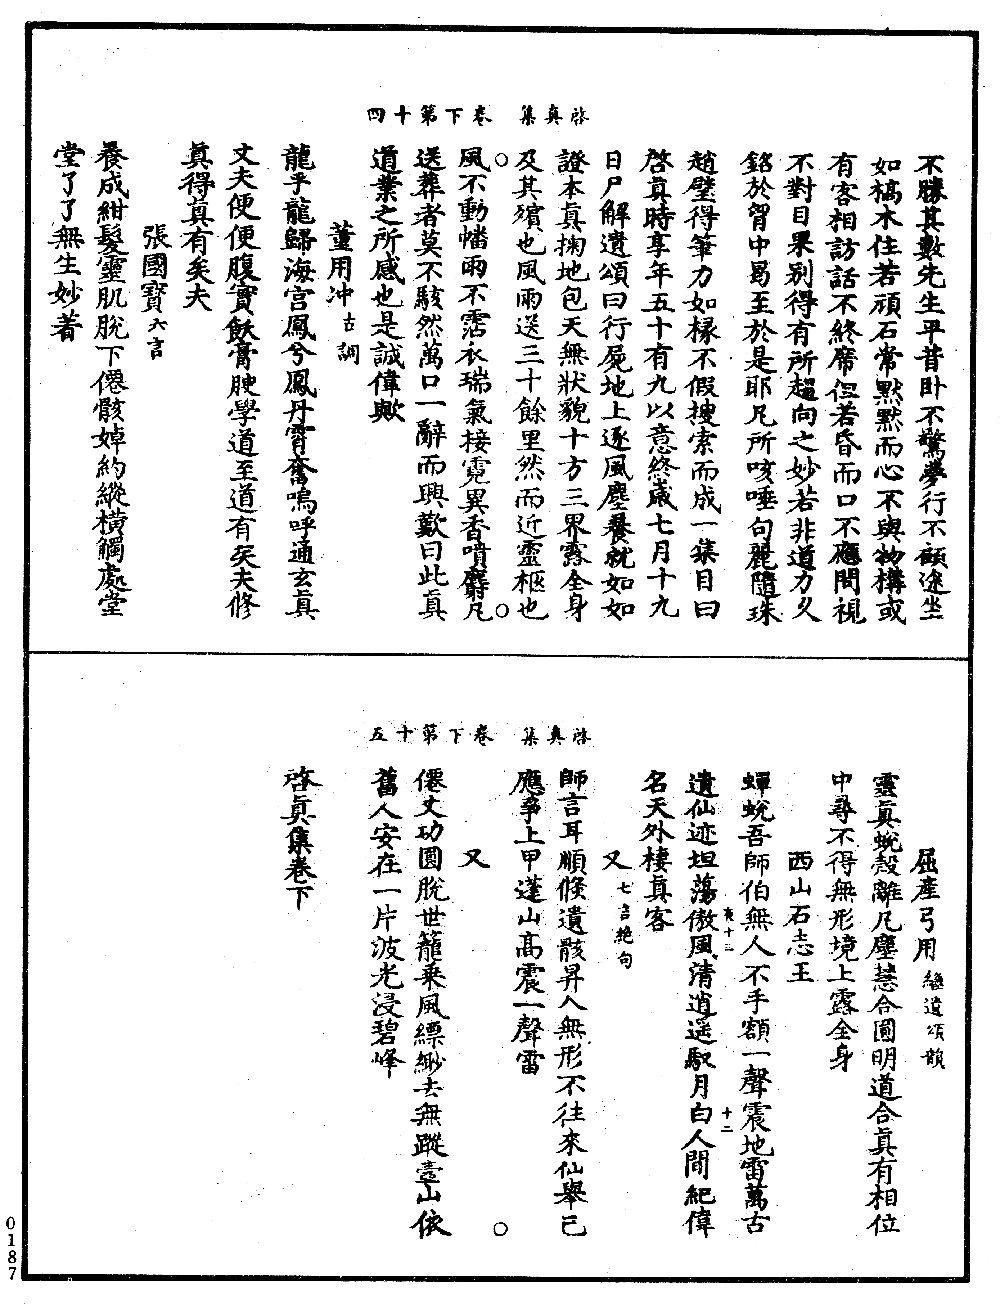 啓真集　卷下第十四
不勝其數先生平昔卧不驚夢行不顧途坐
如槁木住若頑石常默默而心不與物構或
有客相訪話不終席但若昏而口不應問視
不對目果别得有所趨向之妙若非道力久
銘於胷中曷至於是耶凡所咳唾句麗隨珠
趙璧得筆力如椽不假搜索而成一集目曰
啓真時享年五十有九以意終歲七月十九
日尸解遺頌曰行屍地上逐風塵養就如如
證本真掬地包天無狀貌十方三界露全身
及其殯也風雨送三十餘里然而近靈柩也
風不動幡雨不霑衣瑞氣接霓異香噴麝凡
送葬者莫不駭然萬口一辭而興歎曰此真
道業之所感也是誠偉歟
董用冲古調
龍乎龍歸海宫鳳兮鳳丹霄奮嗚呼通玄真
丈夫便便腹實飫膏腴學道至道有矣夫修
真得真有矣夫
張國寶六言
養成紺髮靈肌脫下僊骸婥約縱橫觸處堂
堂了了無生妙著
啓真集　卷下第十五
屈産弓用繼遺頌韻
靈真蛻殼離凡塵慧合圓明道合真有相位
中尋不得無形境上露全身
西山石志玉
蟬蛻吾師伯無人不手額一聲震地雷萬古
遺仙迹坦蕩傲風清逍遥馭月白人間紀偉
名天外棲真客
又七言絶句
師言耳順倐遺骸昇入無形不往來仙舉已
應爭上甲蓬山高震一聲雷
又
僊丈功圓脫世籠乘風縹緲去無蹤臺山依
舊人安在一片波光浸碧峰
啓真集卷下
十二
0187